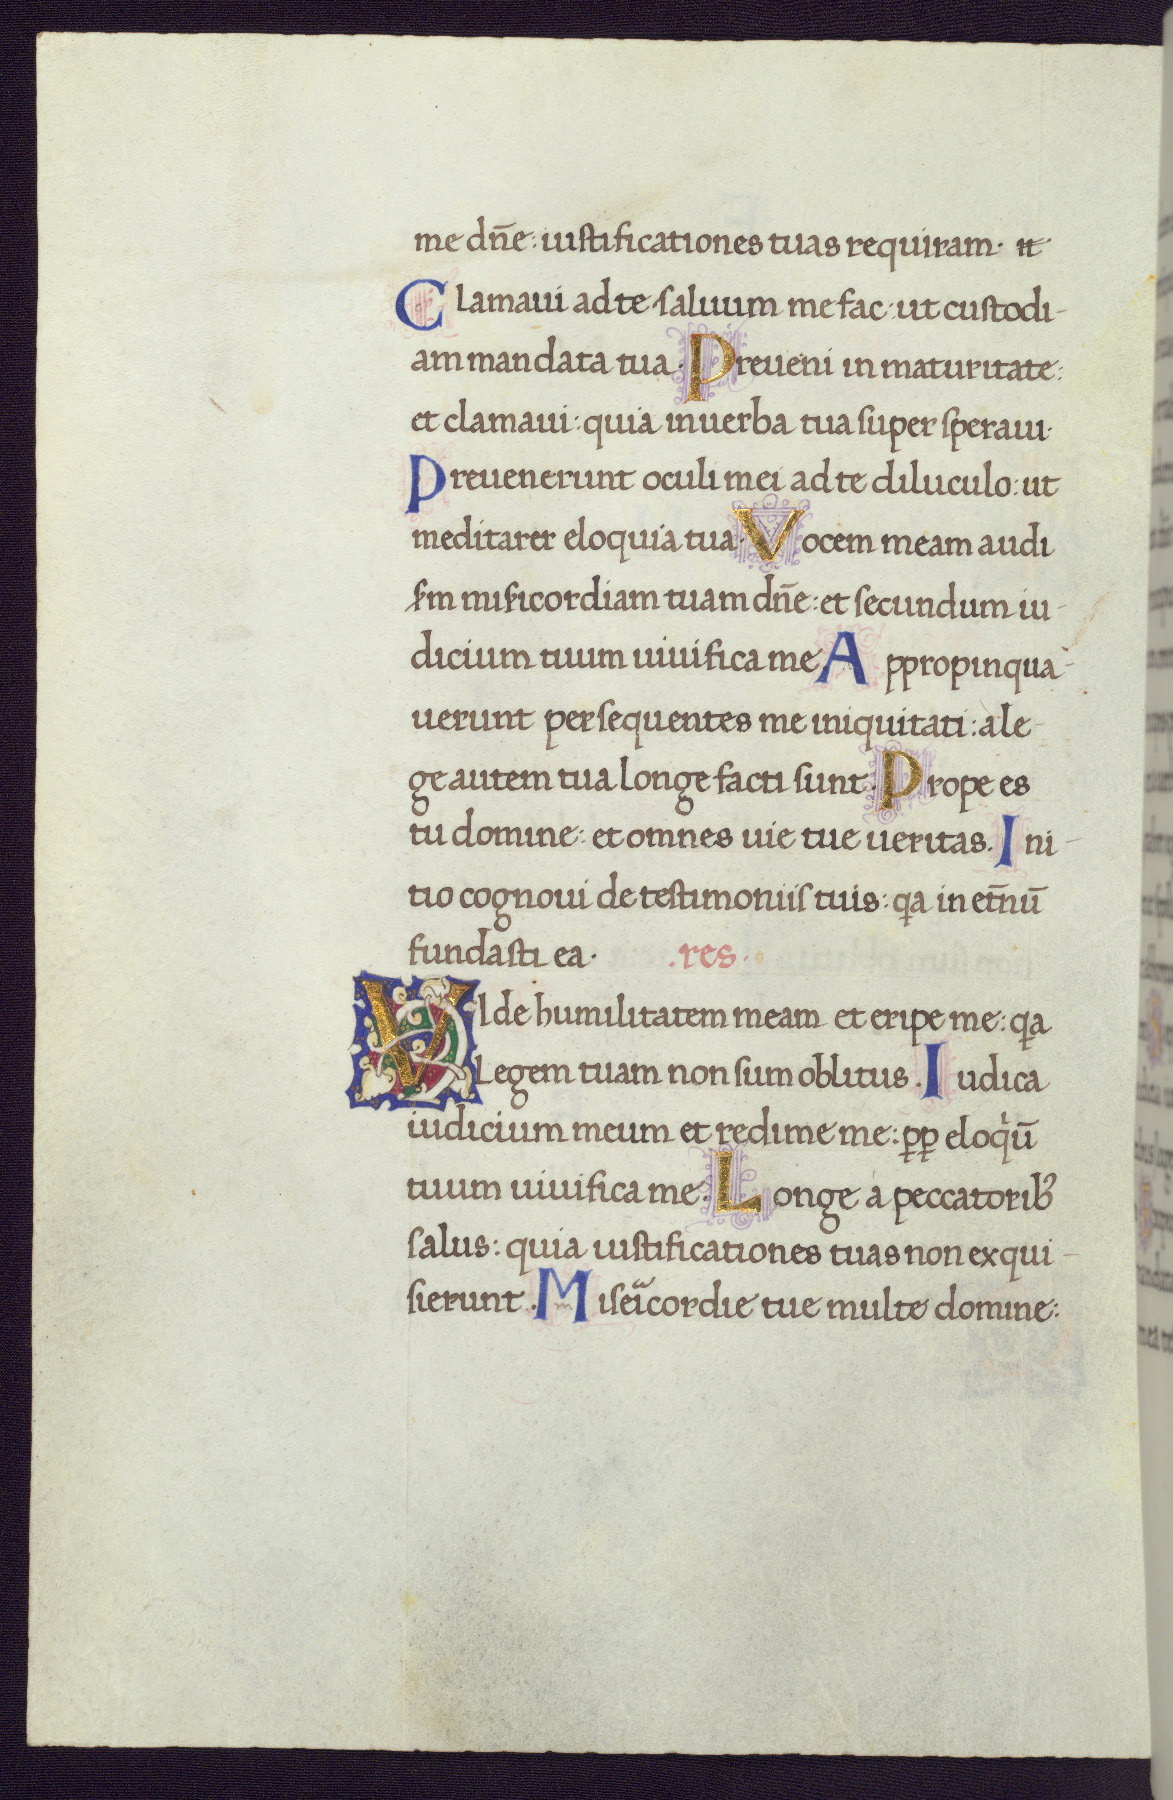 me dn̄e: iustificationes tuas requiram·
Clamaui ad te saluum me fac: ut custodi-
am mandata tua· Preueni in maturitate:
et clamaui: quia in uerba tua super speraui·
Preuenerunt oculi mei ad te diluculo: ut
meditarer eloquia tua· Vocem meam audi
s̄m miſ̄icordiam tuam dn̄e: et secundum iu-
dicium tuum uiuifica me Appropinqua-
uerunt persequentes me iniquitati: a le-
ge autem tua longe facti sunt· Prope es
tu domine: et omnes uie tue ueritas. Ini-
tio cognoui de testimoniis tuis: qa in et̄nū
fundasti ea· .res·
VIde humilitatem meam et eripe me: qa
Legem tuam non sum oblitus. Iudica
iudicium meum et redime me: ꝑꝑ eloqⁱū
tuum uiuifica me· Longe a peccatorib⁹
salus: quia iustificationes tuas non exqui-
sierunt. Miseicordie tue multe domine: